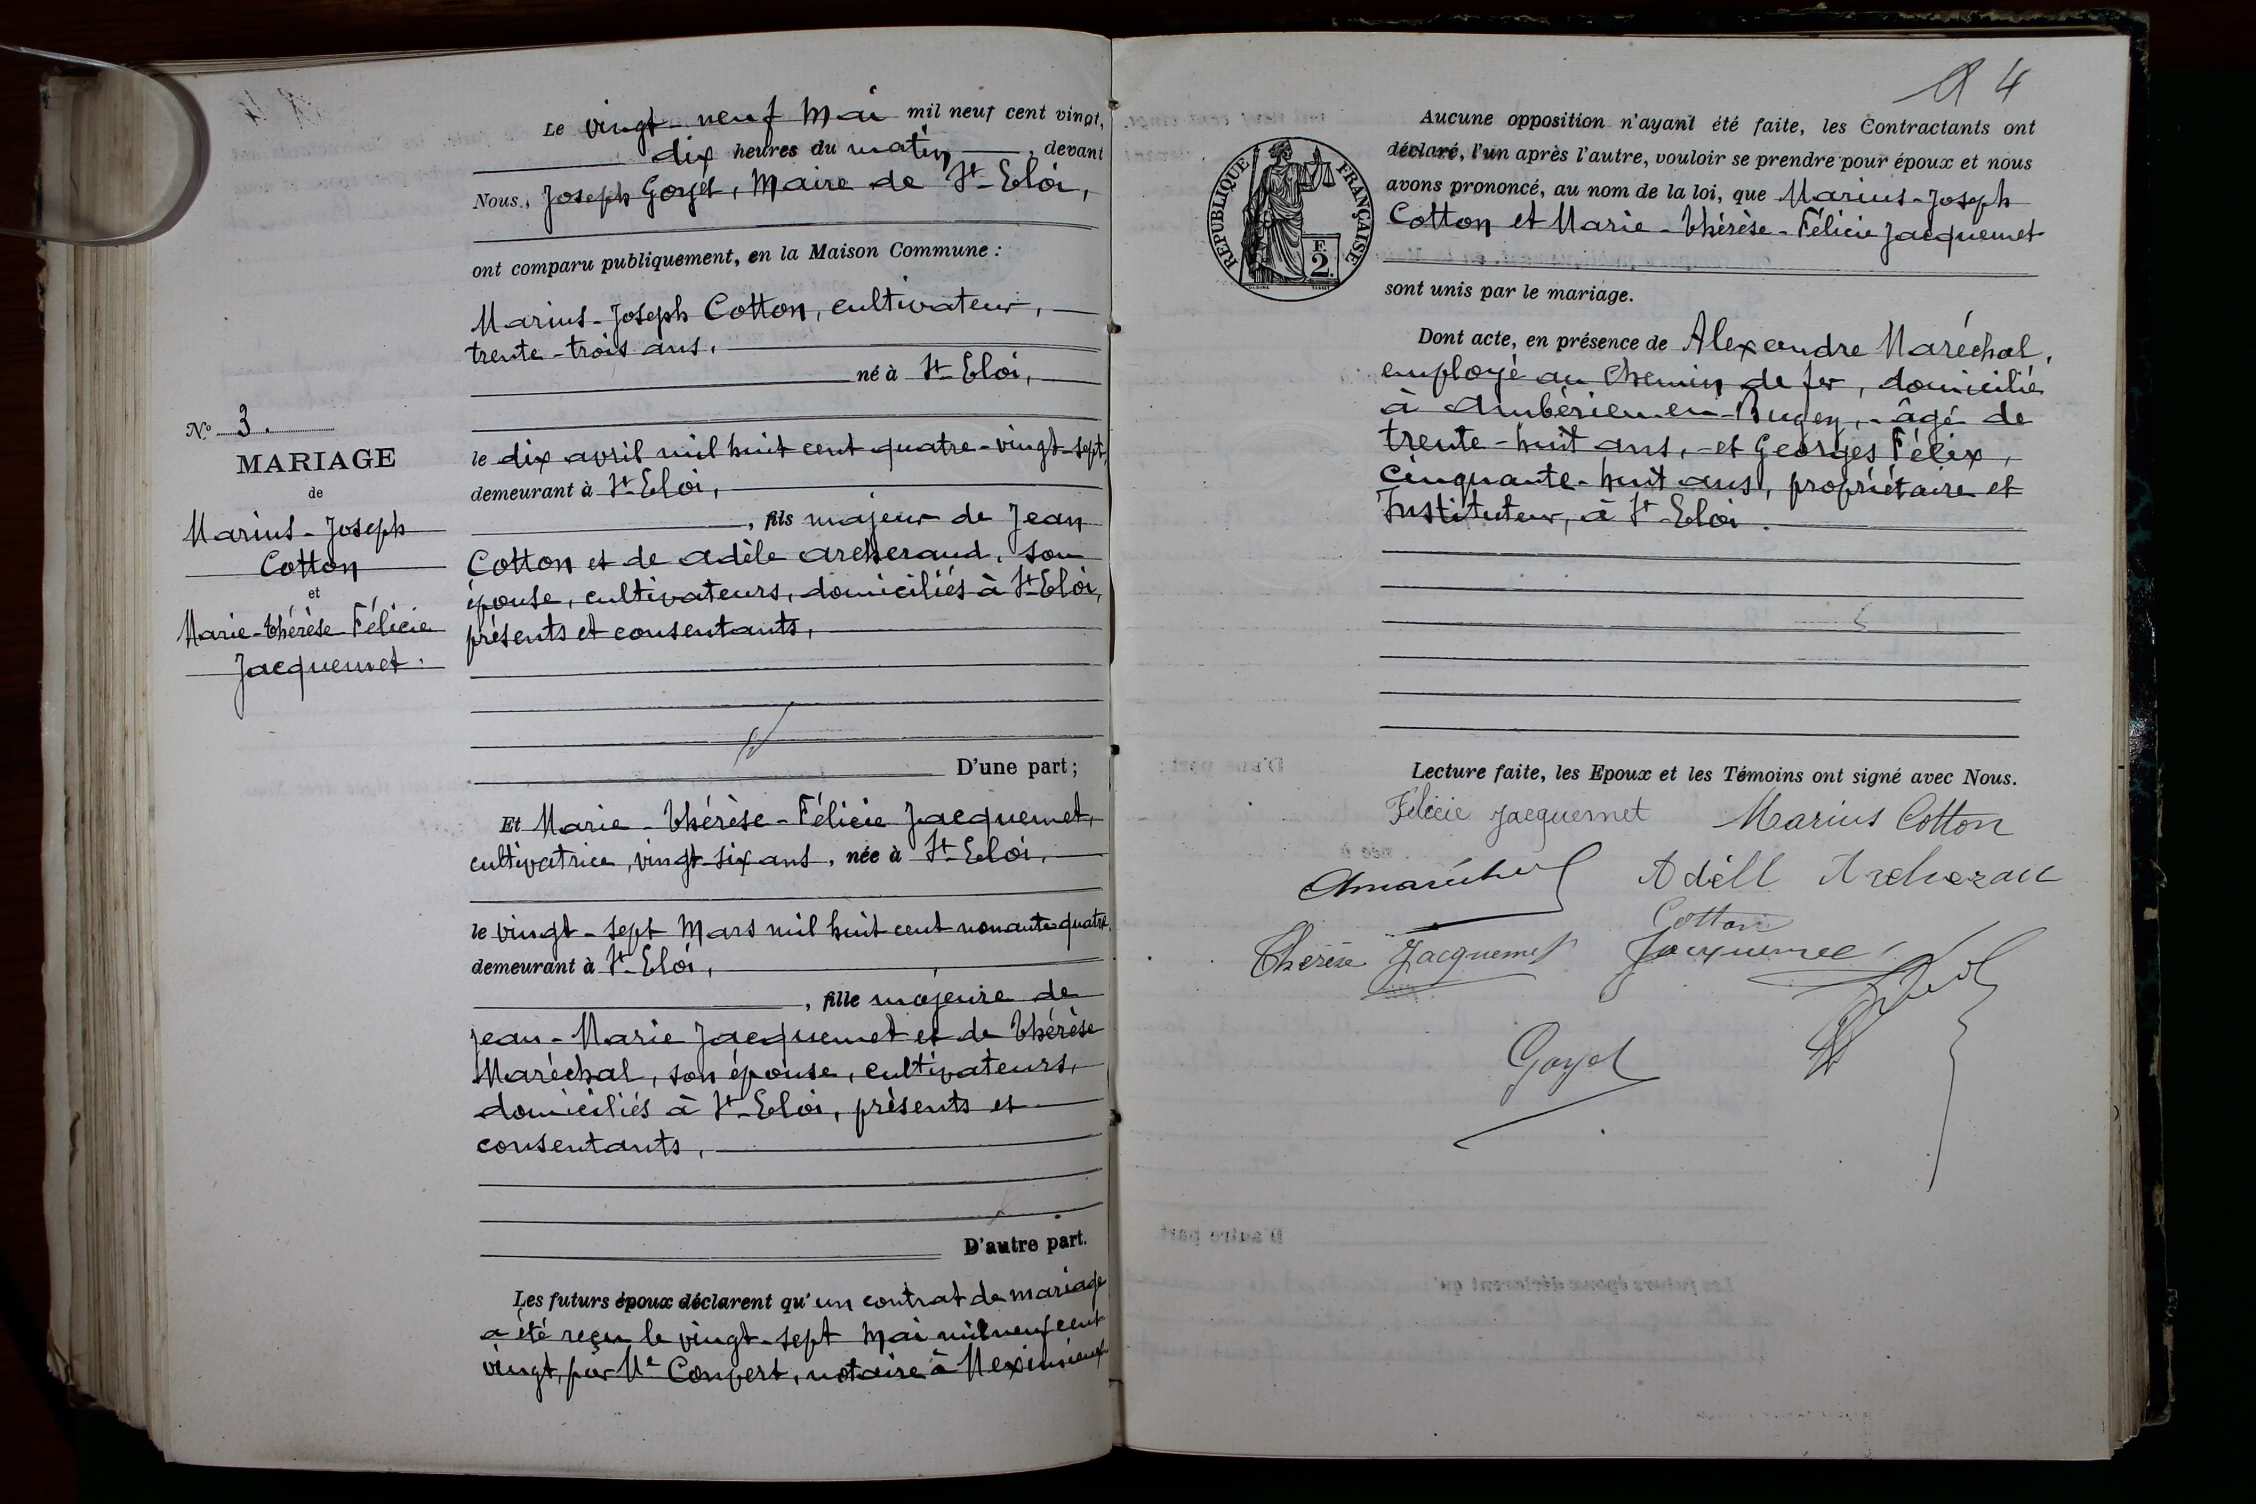 Le vingt-neuf Mai mil neuf cent vingt,
dix heures du matin, devant
Nous, Joseph Goyet, Maire de St-Eloi,
ont comparu publiquement, en la Maison Commune :
Marius-Joseph Cotton, cultivateur,
trente-trois ans,
né à St-Eloi,
le dix avril mil huit cent quatre-vingt-sept,
demeurant à St-Eloi,
, fils majeur de Jean
Cotton et de Adèle Archeraud, son
épouse, cultivateurs, domiciliés à St-Eloi,
présents et consentants,
D'une part ;
Et Marie-Thérèse-Félicie Jacquemet,
cultivatrice, vingt-six ans, née à St-Eloi,
le vingt-sept Mars mil huit cent nonante-quatre,
demeurant à St-Eloi,
, fille majeure de
Jean-Marie Jacquemet et de Thérèse
Maréchal, son épouse, cultivateurs,
domiciliés à St-Eloi, présents et
consentants,
D'autre part.
Les futurs époux déclarent qu'un contrat de mariage
a été reçu le vingt-sept Mai mil neuf cent
vingt, par Me Convert, notaire à Meximieux
No 3.
MARIAGE
de
Marius-Joseph
Cotton
et
Marie-Thérèse-Félicie
Jacquemet.
4
REPUBLIQUE FRANÇAISE
F.
2.
Aucune opposition n'ayant été faite, les Contractants ont
déclaré, l'un après l'autre, vouloir se prendre pour époux et nous
avons prononcé, au nom de la loi, que Marius-Joseph
Cotton et Marie-Thérèse-Félicie Jacquemet
sont unis par le mariage.
Dont acte, en présence de Alexandre Maréchal,
employé au Chemin de fer, domicilié
à Ambérieu-en-Bugey, âgé de
trente-huit ans, et Georges Félix,
cinquante-huit ans, propriétaire et
Instituteur, à St-Eloi.
Lecture faite, les Epoux et les Témoins ont signé avec Nous.
Félicie Jacquemet Marius Cotton
Amaréchal Adèll Archerau
Cotton
Thérèse Jacquemet Jacquemet
Goyet